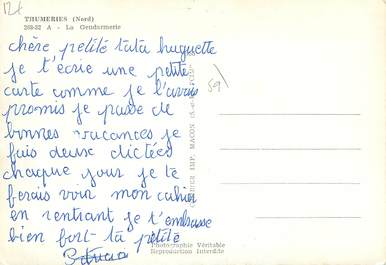 12f
THUMERIES (Nord)
268-32 A - La Gendarmerie
chère petite tata huguette
je t'écrie une petite
carte comme je l'avais
promis je passe de
bonnes vacances je
fais deux dictées
chaque jour je te
ferais voir mon cahier
en rentrant je t'embrasse
bien fort - ta petite
Patricia
59
IMP. MACON (S.-et-L.)
Photographie Véritable
Reproduction Interdite